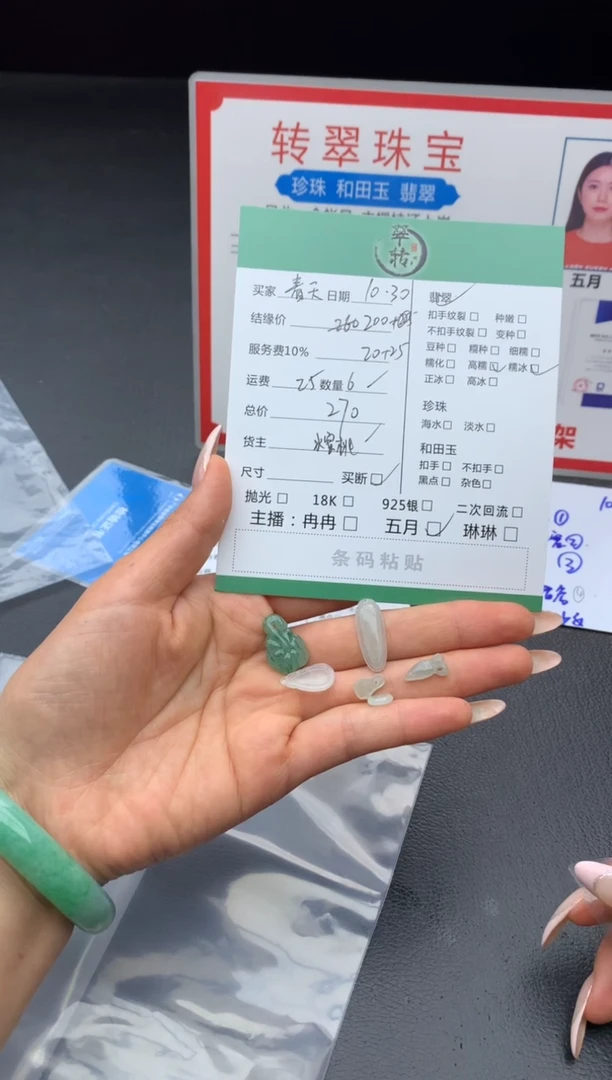 转翠珠宝
珍珠 和田玉 翡翠
五月
架
翠转
买家 青天 日期 10.30
结缘价 260 200+
服务费10% 20+25
运费 25 数量 6
总价 270
货主
尺寸 买断
翡翠
扣手纹裂 种嫩
不扣手纹裂 变种
豆种 糯种 细糯
糯化 高糯 糯冰
正冰 高冰
珍珠
海水 淡水
和田玉
扣手 不扣手
黑点 杂色
抛光 18K 925银 二次回流
主播：冉冉 五月 琳琳
条码粘贴
①
③